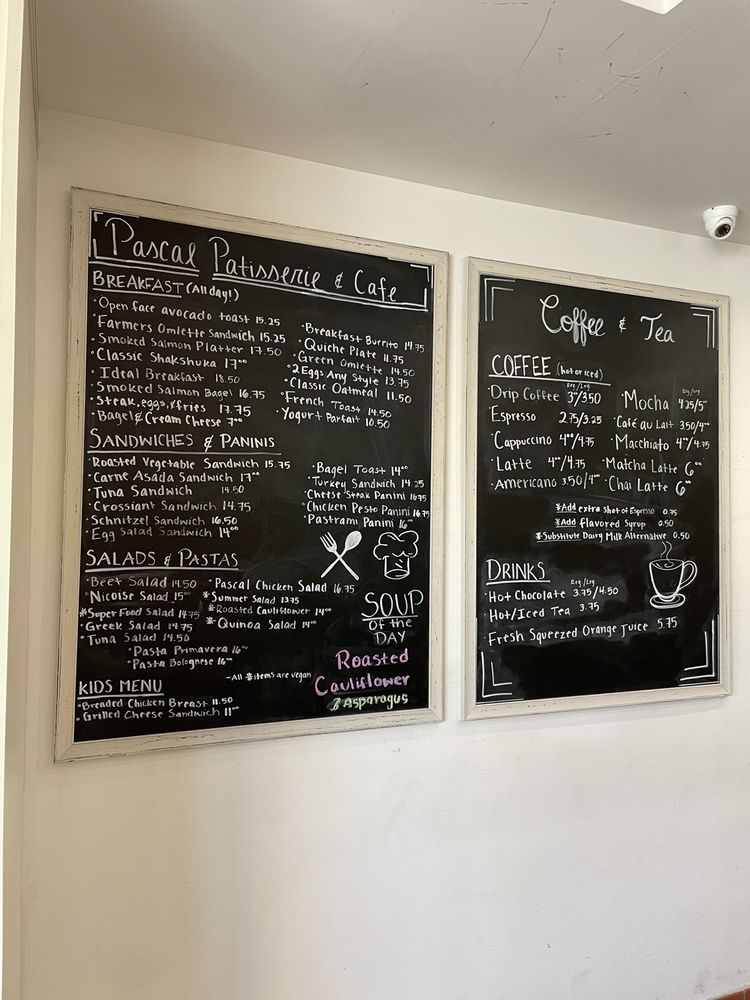 Pascal Patisserie & Cafe
BREAKFAST (All day!)
·Open face avocado toast 15.25
·Farmers Omlette Sandwich 15.25
·Smoked Salmon Platter 17.50
·Classic Shakshuka 17⁰⁰
·Ideal Breakfast 18.50
·Smoked Salmon Bagel 16.75
·Steak, eggs, & fries 17.75
·Bagel & Cream Cheese 7⁰⁰
·Breakfast Burrito 14.75
·Quiche Plate 11.75
·Green Omlette 14.50
·2 Eggs Any Style 13.75
·Classic Oatmeal 11.50
·French Toast 14.50
·Yogurt Parfait 10.50
SANDWICHES & PANINIS
·Roasted Vegetable Sandwich 15.75
·Carne Asada Sandwich 17⁰⁰
·Tuna Sandwich 14.50
·Crossiant Sandwich 14.75
·Schnitzel Sandwich 16.50
·Egg Salad Sandwich 14⁰⁰
·Bagel Toast 14⁰⁰
·Turkey Sandwich 14.25
·Cheese Steak Panini 16.75
·Chicken Pesto Panini 16.75
·Pastrami Panini 16⁰⁰
SALADS & PASTAS
·Beet Salad 14.50
·Nicoise Salad 15⁰⁰
*Super Food Salad 14.75
·Greek Salad 14.75
·Tuna Salad 14.50
·Pascal Chicken Salad 16.75
*Summer Salad 13.75
*Roasted Cauliflower 14⁰⁰
*Quinoa Salad 14⁰⁰
·Pasta Primavera 16⁰⁰
·Pasta Bolognese 16⁰⁰
-All * items are vegan
KIDS MENU
·Breaded Chicken Breast 11.50
·Grilled Cheese Sandwich 11⁰⁰
SOUP
OF THE
DAY
Roasted
Cauliflower
& Asparagus
Coffee & Tea
COFFEE (hot or iced)
Reg/Lrg
·Drip Coffee 3⁰⁰/3.50
·Espresso 2.75/3.25
·Cappuccino 4⁰⁰/4.75
·Latte 4⁰⁰/4.75
·Americano 3.50/4⁰⁰
Reg/Lrg
·Mocha 4.25/5⁰⁰
·Café au Lait 3.50/4⁰⁰
·Macchiato 4⁰⁰/4.75
·Matcha Latte 6⁰⁰
·Chai Latte 6⁰⁰
*Add extra shot of Espresso 0.75
*Add flavored Syrup 0.50
*Substitute Dairy Milk Alternative 0.50
DRINKS
Reg/Lrg
·Hot Chocolate 3.75/4.50
·Hot/Iced Tea 3.75
·Fresh Squeezed Orange Juice 5.75